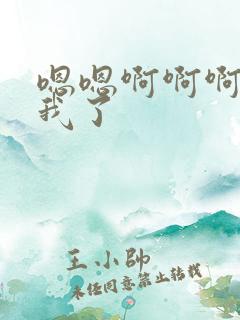 嗯嗯啊啊啊
我了
王小帥
未经同意禁止转载